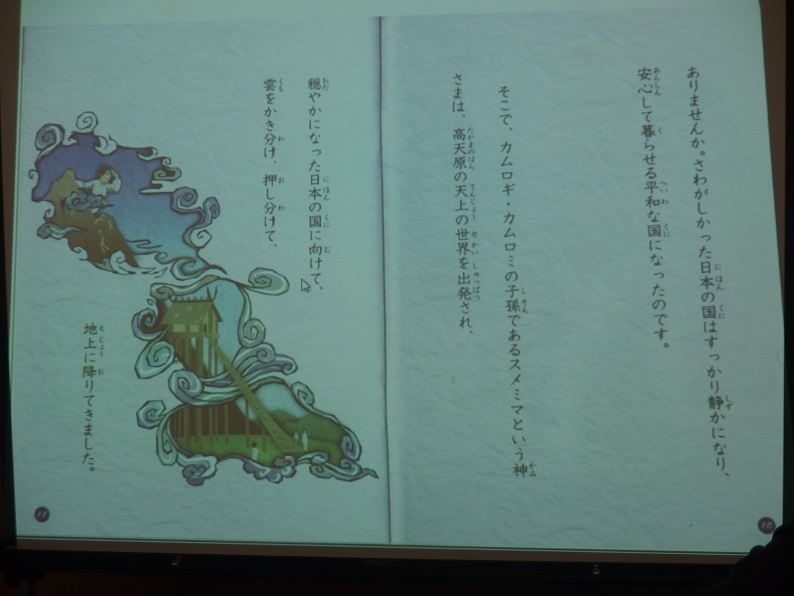 ありませんか。さわがしかった日本の国はすっかり静かになり、
安心して暮らせる平和な国になったのです。
そこで、カムロギ・カムロミの子孫であるスメミマという神
さまは、高天原の天上の世界を出発され、
10
穏やかになった日本の国に向けて、
雲をかき分け、押し分けて、
地上に降りてきました。
11